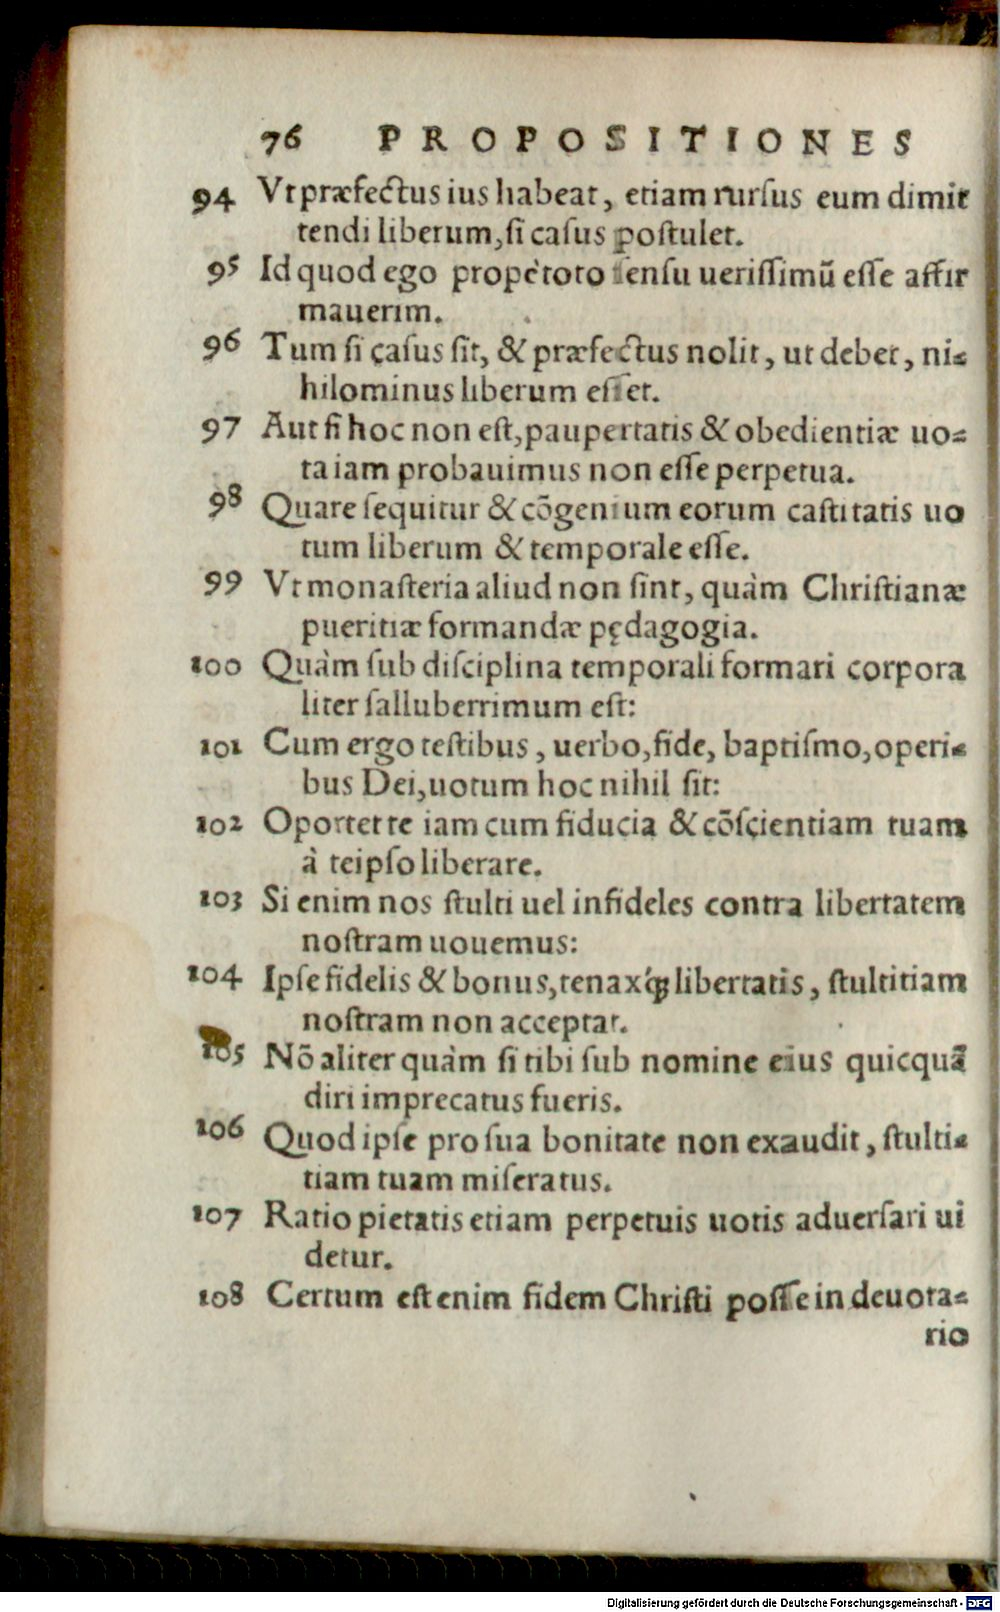 76 PROPOSITIONES
94 Vt præfectus ius habeat, etiam rursus eum dimit
tendi liberum, si casus postulet.
95 Id quod ego propè toto sensu uerissimũ esse affir
mauerim.
96 Tum si casus sit, & præfectus nolit, ut debet, ni⸗
hilominus liberum esset.
97 Aut si hoc non est, paupertatis & obedientiæ uo⸗
ta iam probauimus non esse perpetua.
98 Quare sequitur & cõgenium eorum castitatis uo
tum liberum & temporale esse.
99 Vt monasteria aliud non sint, quàm Christianæ
pueritiæ formandæ pędagogia.
100 Quàm sub disciplina temporali formari corpora
liter salluberrimum est:
101 Cum ergo testibus, uerbo, fide, baptismo, operi⸗
bus Dei, uotum hoc nihil sit:
102 Oportet te iam cum fiducia & cõscientiam tuam
à teipso liberare.
103 Si enim nos stulti uel infideles contra libertatem
nostram uouemus:
104 Ipse fidelis & bonus, tenaxq́ꝫ libertatis, stultitiam
nostram non acceptat.
105 Nõ aliter quàm si tibi sub nomine eius quicquã
diri imprecatus fueris.
106 Quod ipse pro sua bonitate non exaudit, stulti⸗
tiam tuam miseratus.
107 Ratio pietatis etiam perpetuis uotis aduersari ui
detur.
108 Certum est enim fidem Christi posse in deuota⸗
rio
Digitalisierung gefördert durch die Deutsche Forschungsgemeinschaft - DFG